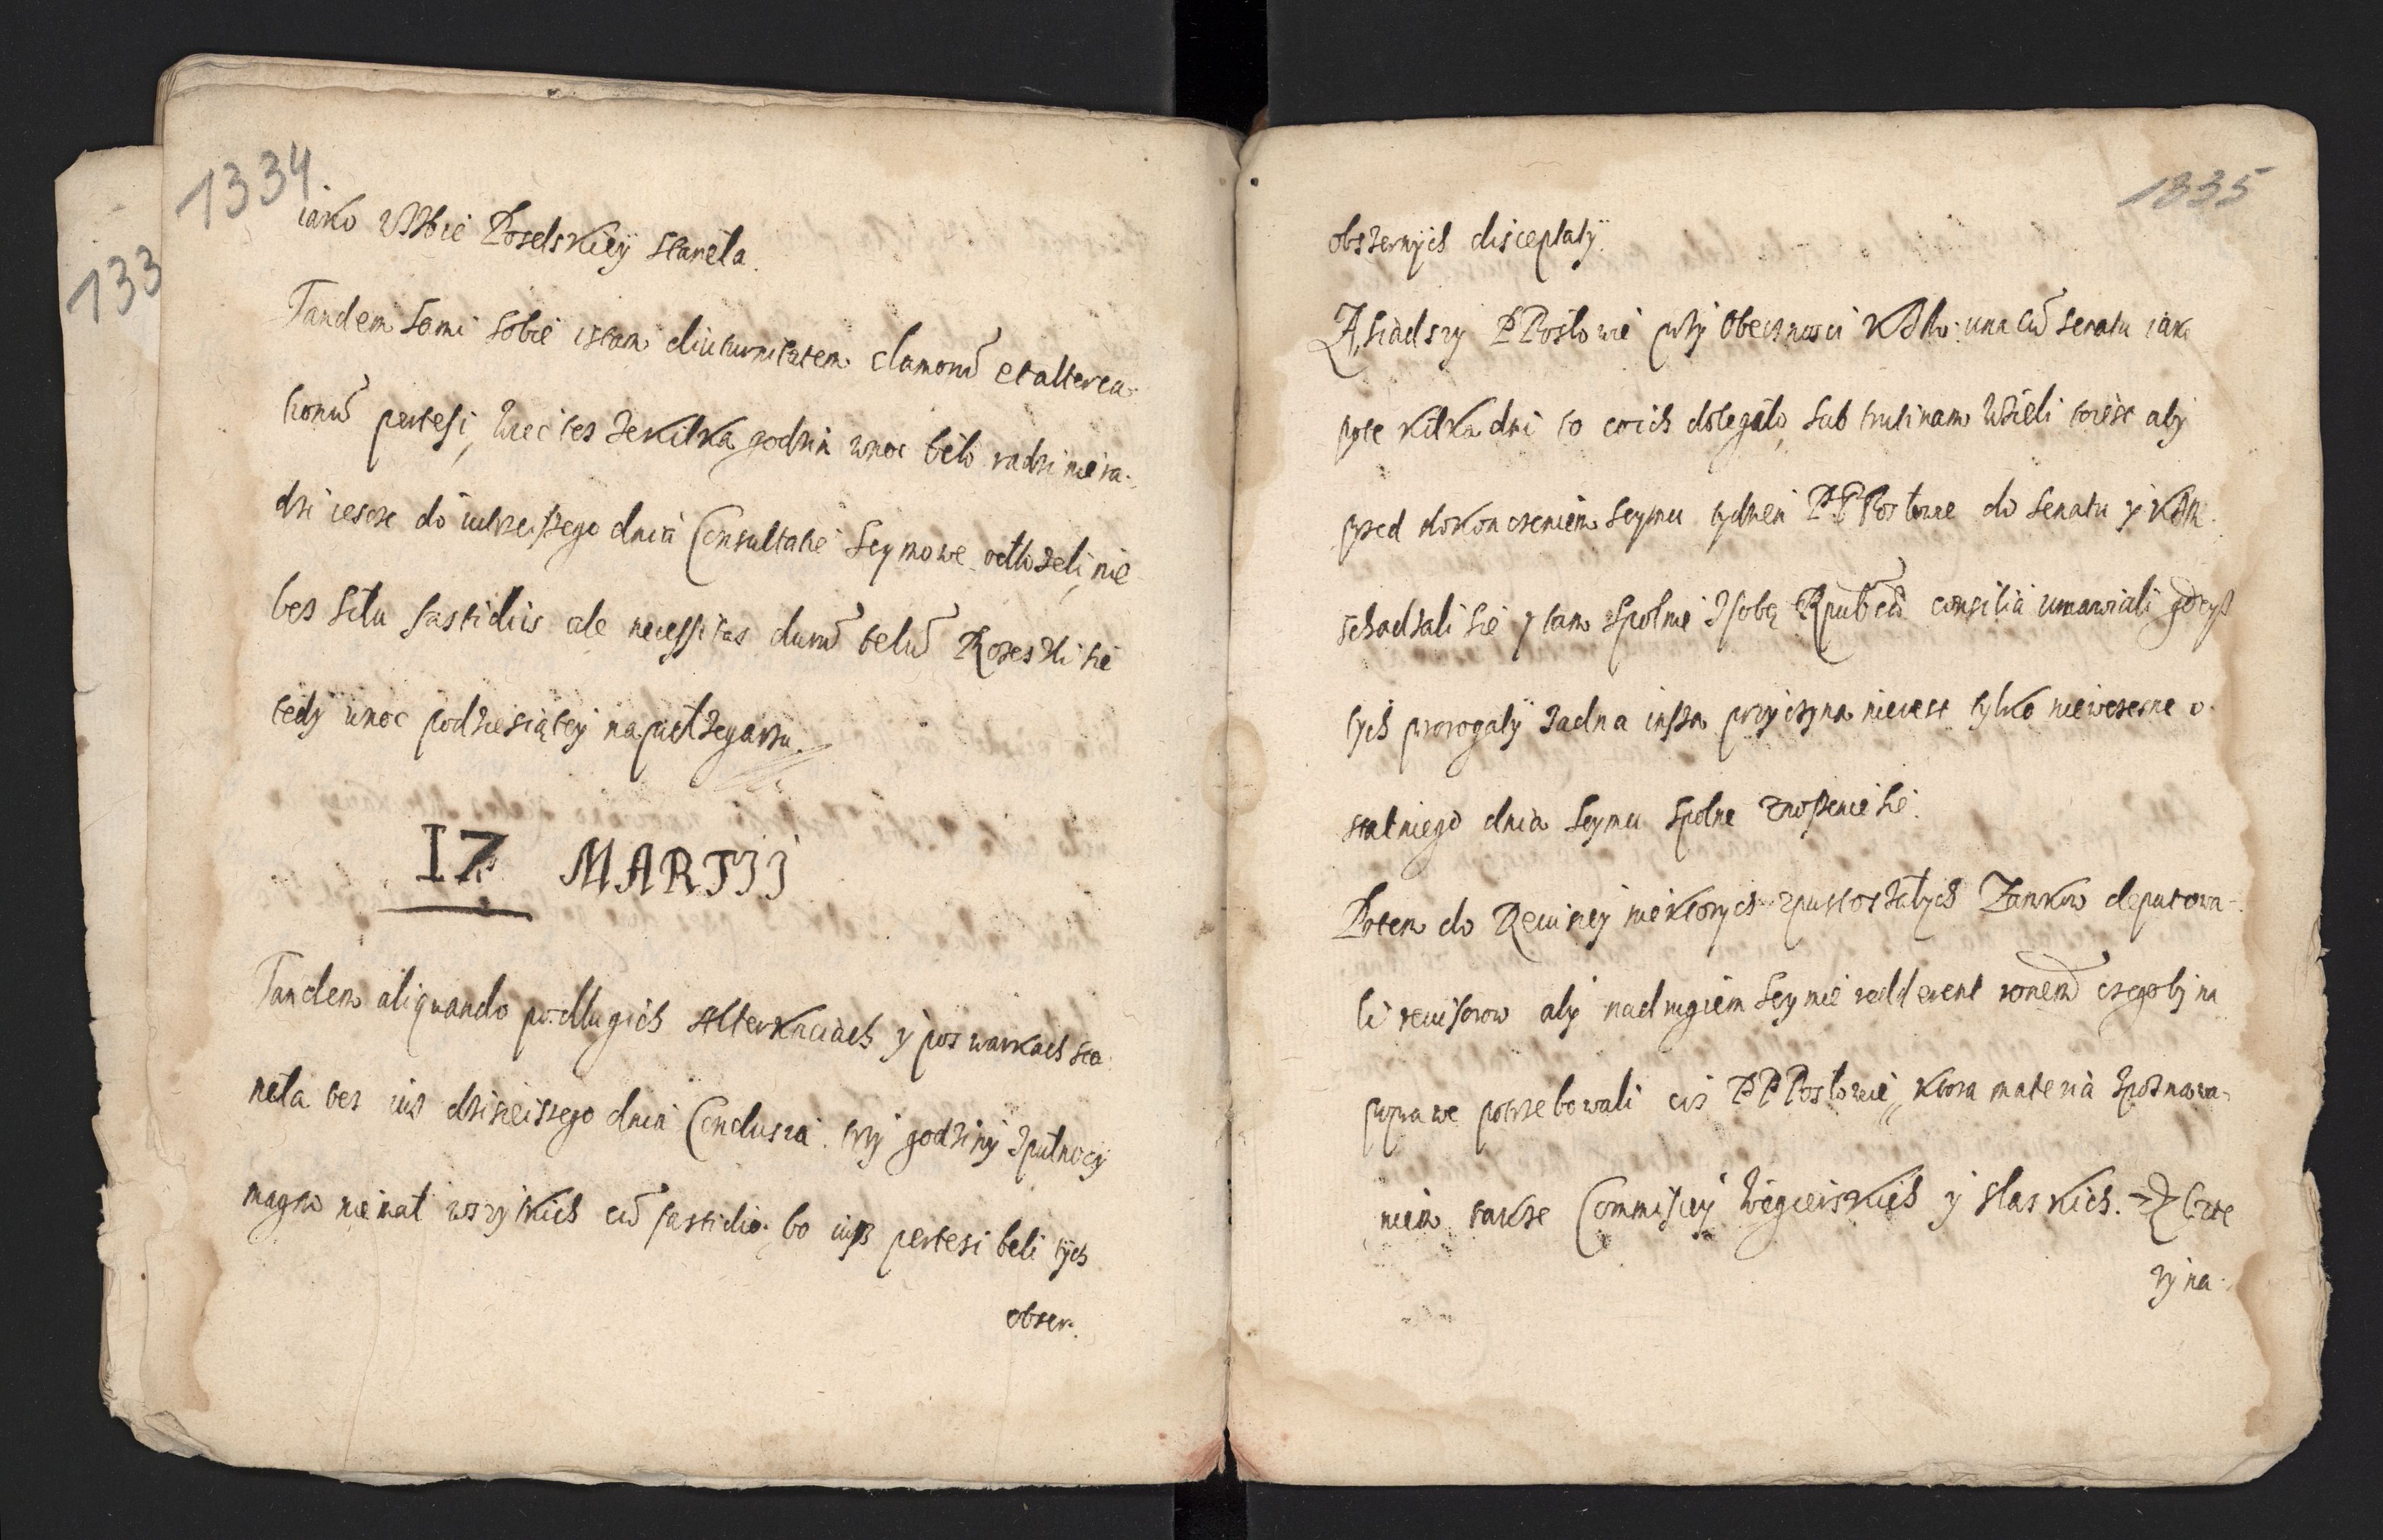 1334
133
iako W Izbie Poselskieÿ stanęła.
Tandem sami sobie istam diuturnitatem clamorū et alterca-
tionū pertesi, wiec tes ze kilka godzin w noc beło radzi nie ra-
dzi iescze do iutrzeiszego dnia Consultatie Seymowe odłozeli, nie
bes sełu fastidiis ale necessitas durū telū Rozeszli sie
tedÿ w noc po dziesiąteÿ na puł zegarzu.
17 MARTIJ
Tandem aliquando po dlugich Alterkaciach ÿ poswarkach sta-
neła tes iuz dzisieiszego dnia Conclusia trzÿ godzinÿ z pułnocÿ
magno nie nal wszÿtkich cū fastidio, bo iuß pertesi beli tÿch
obszer.
1335
obszernÿch disceptatÿ.
Zasiadszy PPosłowie przÿ obecznosci KJM: una cū senatu iak
prze kilka dni to co ich dolegało, sub trutinam wzieli toiest abÿ
przed dokonczeniem Seymu tydzien PPPosłowie do Senatu ÿ KJM.
schadzali sie ÿ tam spolnie z sobą Rpubcū consilia umawiali gdyß
tÿch prorogatÿ zadna insza przyczyna nie iest tylko nie wczesne o-
statniego dnia Seymu spolne znoßenie sie.
Potem do Rewizeÿ niektorych spustoszałych Zamkow deputowa-
li rewisorow abÿ na drugiem Seymie redderent ronem czegobÿ na
poprawe potrzebowali ciz PPPosłowie, ktora materia z poznawa-
niem takze Commisieÿ Węgierskich ÿ slaskich. Czte
rÿ na.